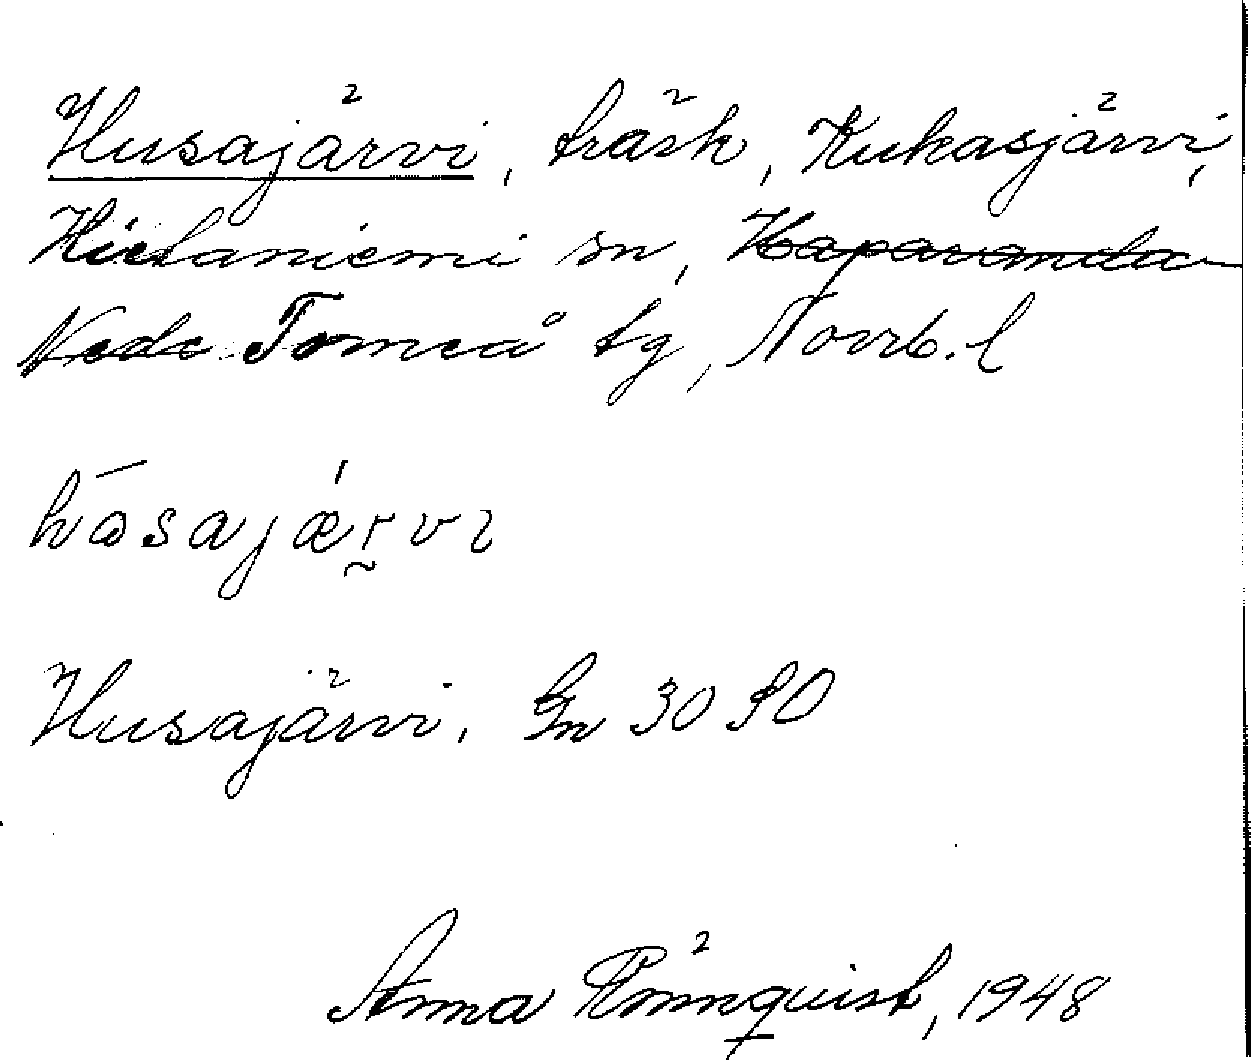 Husajärvi, träsk, Kukasjärvi,
Hietaniemi sn, Haparanda
Nede Torneå tg, Norrb. l
Husajärvi. Gn 30 SO
Anna Rönnquist, 1948